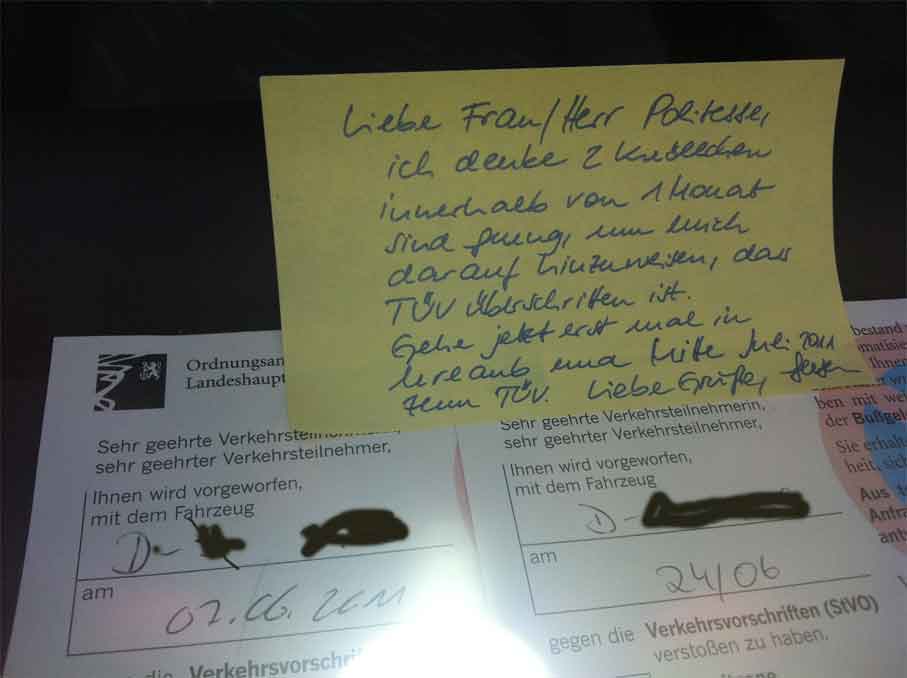 Liebe Frau/Herr Politesse,
ich denke 2 Knöllchen
innerhalb von 1 Monat
sind genug, um mich
darauf hinzuweisen, dass
TÜV überschritten ist.
Gehe jetzt erst mal in
Urlaub und Mitte Juli 2011
zum TÜV. Liebe Grüße,
Ordnungsam
Landeshaupt
Sehr geehrte Verkehrsteilnehmerin,
sehr geehrter Verkehrsteilnehmer,
Ihnen wird vorgeworfen,
mit dem Fahrzeug
D-
am
02.06.2011
die Verkehrsvorschri
Sehr geehrte Verkehrsteilnehmerin,
sehr geehrter Verkehrsteilnehmer,
Ihnen wird vorgeworfen,
mit dem Fahrzeug
D-
am
24/06
gegen die Verkehrsvorschriften (StVO)
verstoßen zu haben.
bestand
omatisie
Ihnen
ben mit we
der Bußgel
Sie erhalte
heit, sich
Aus t
Anfra
ant